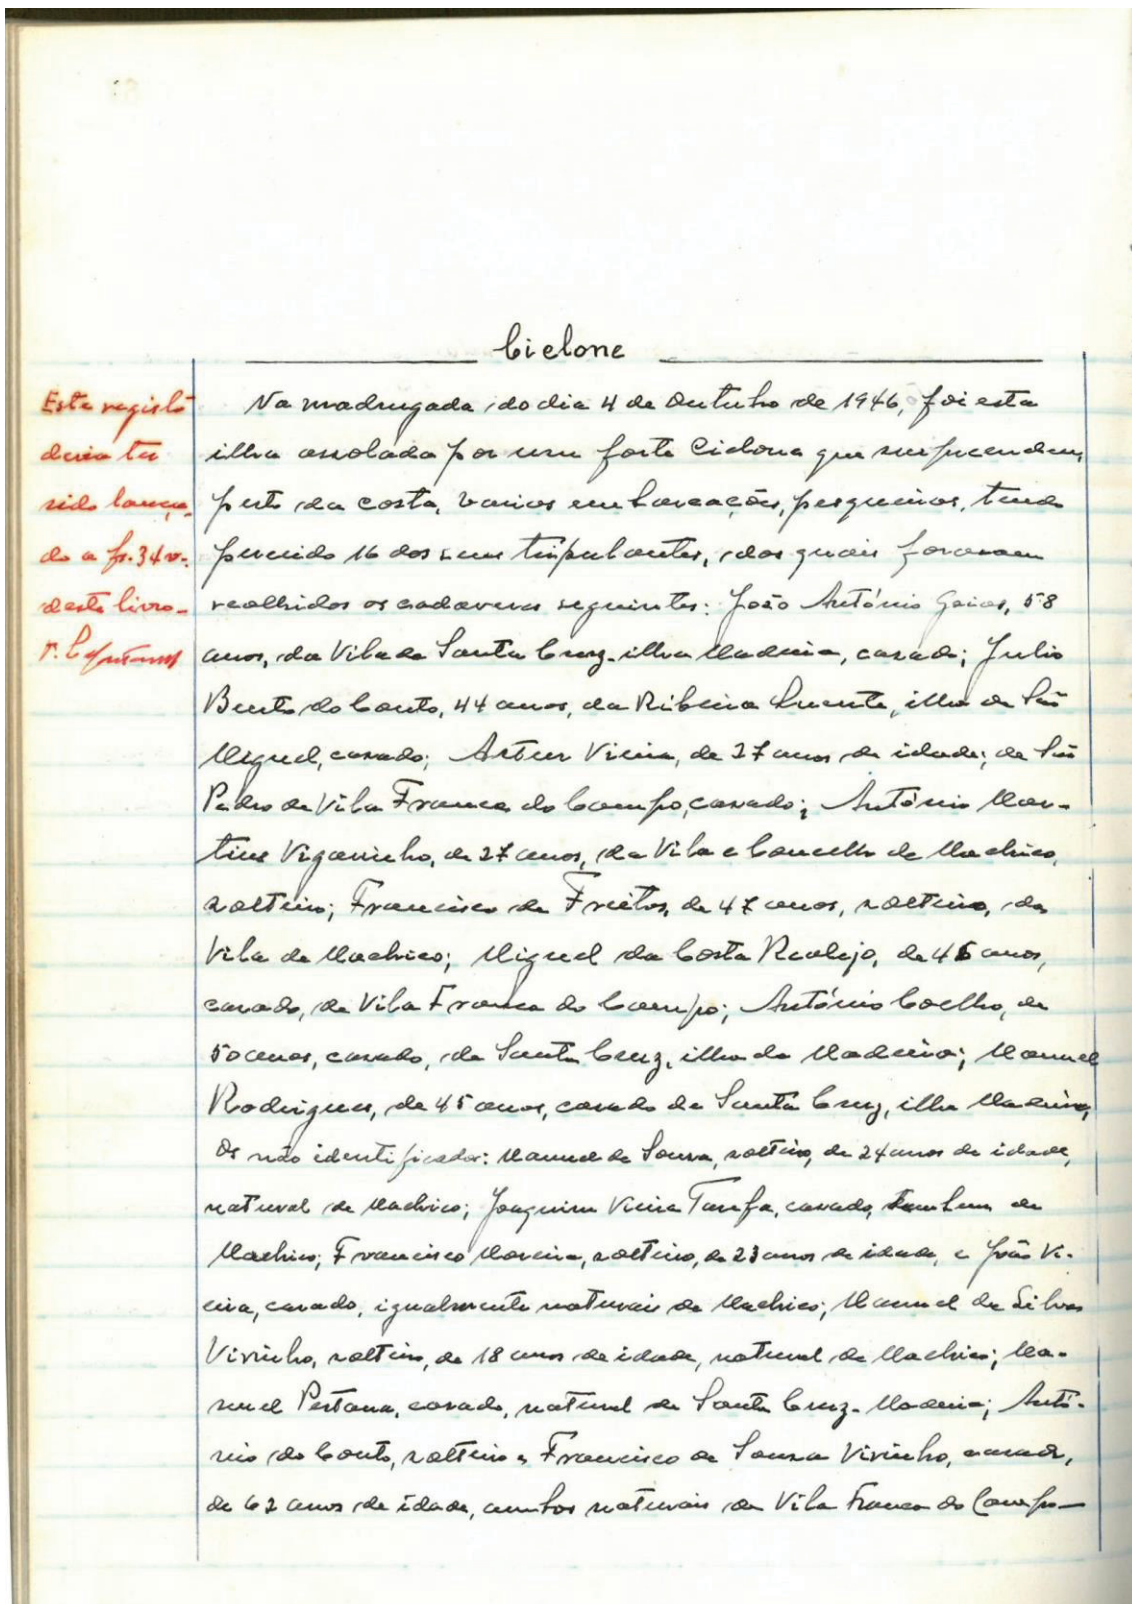 Ciclone
Este registo
devia ter
sido lança-
do a fs. 34 v.
deste livro-
Na madrugada do dia 4 de Outubro de 1946, foi esta
ilha assolada por um forte Ciclone que surpreendeu,
perto da costa, varias embarcações, pesqueiras, tendo
perecido 16 dos seus tripulantes, dos quais foram
recolhidos os cadaveres seguintes: João António, 58
anos, da Vila de Santa Cruz-ilha Madeira, casado; Julio
Bento do Couto, 44 anos, da Ribeira Quente, ilha de São
Miguel, casado; Artur Vieira, de 27 anos de idade; de São
Pedro de Vila Franca do Campo, casado; António Mar-
tins, de 27 anos, da Vila e Concelho de Machico,
solteiro; Francisco de Freitas, de 47 anos, solteiro, da
Vila de Machico; Miguel da Costa Realejo, de anos,
casado, de Vila Franca do Campo; António Coelho, de
50 anos, casado, de Santa Cruz, ilha da Madeira; Manuel
Rodrigues, de 45 anos, casado de Santa Cruz, ilha Madeira,
Os não identificados: Manuel de Sousa, solteiro, de 24 anos de idade,
natural de Machico; Joaquim Vieira, casado, tambem de
Machico; Francisco Moreira, solteiro, de 23 anos de idade, e João Vi-
eira, casado, igualmente naturais de Machico; Manuel da Silva
Virinho, solteiro, de 18 anos de idade, natural de Machico; Ma-
nuel Pestana, casado, natural de Santa Cruz-Madeira; Antó-
nio do Couto, solteiro e Francisco de Sousa Virinho, casado,
de 62 anos de idade, ambos naturais de Vila Franca do Campo-